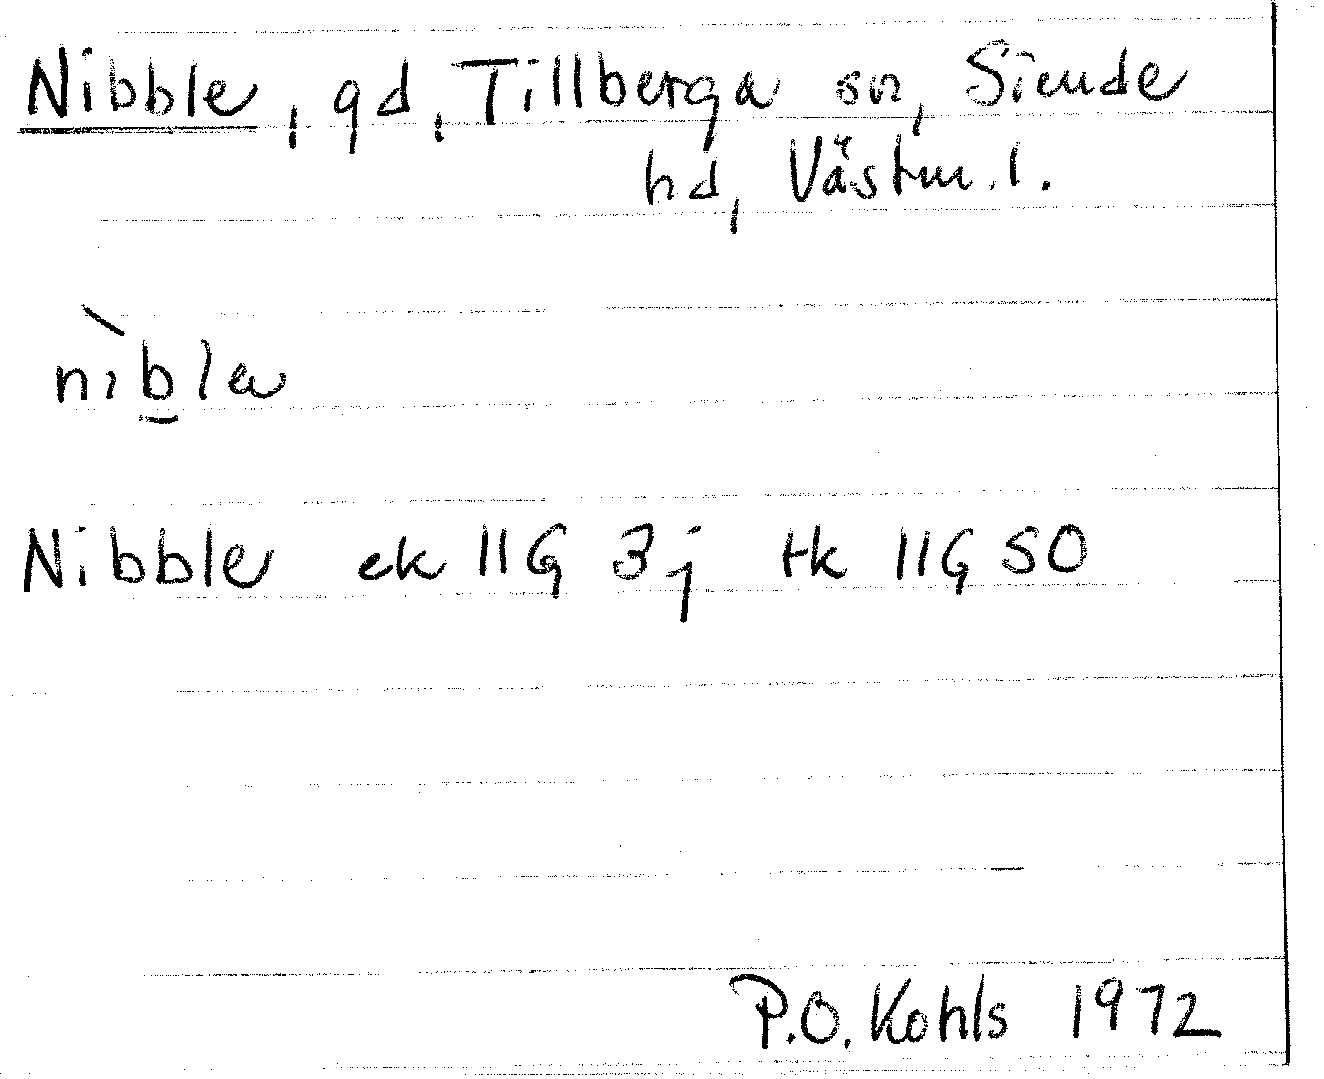 Nibble, gd, Tillberga sn, Siende
hd, Västm. l.
nìb̲la
Nibble ek 11G 3j tk 11G SO
P.O. Kohls 1972